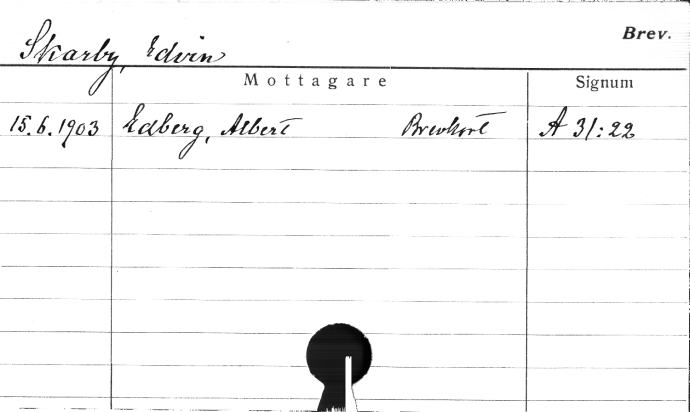 Brev.
Skarby, Edvin
Mottagare Signum
15.6.1903 Edberg, Albert Brevkort A 31:22